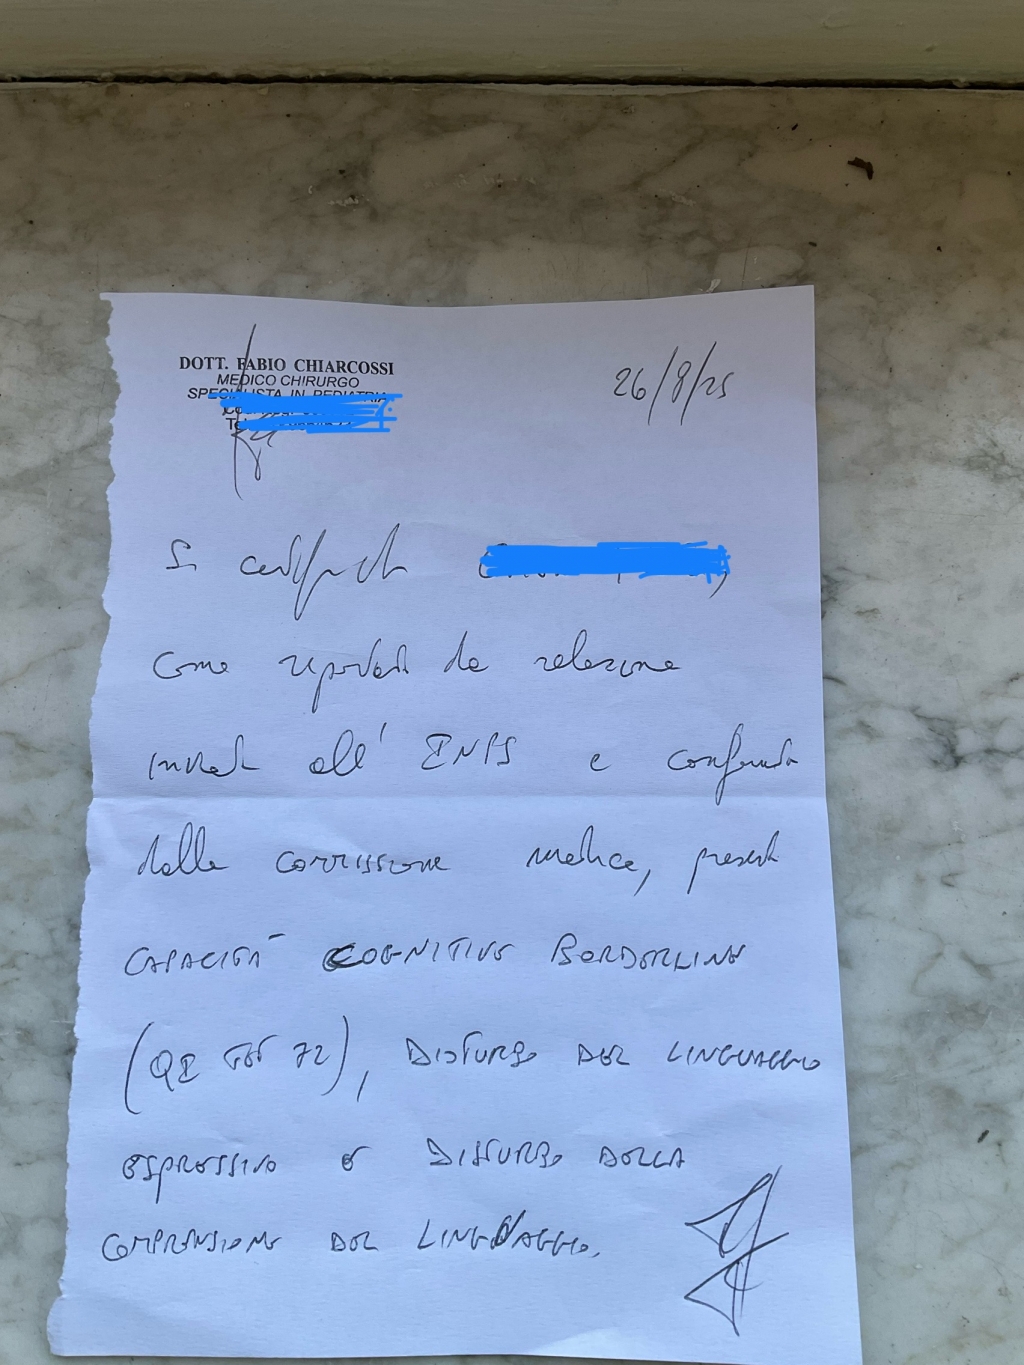 DOTT. FABIO CHIARCOSSI
MEDICO CHIRURGO
SPECIALISTA IN PEDIATRIA
26/8/25
Si certifica che
come riportato da relazione
inviata all' INPS e confermata
dalla commissione medica, presenta
CAPACITÀ COGNITIVE BORDERLINE
(QI TOT 72), DISTURBO DEL LINGUAGGIO
ESPRESSIVO E DISTURBO DELLA
COMPRENSIONE DEL LINGUAGGIO.